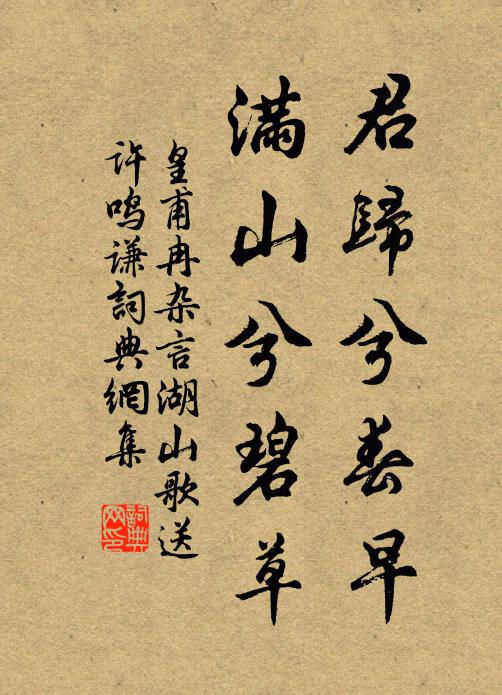 君歸兮春早
滿山兮碧草
皇甫冉杂言湖山歌送
许鸣谦詞典網集
詞典网印